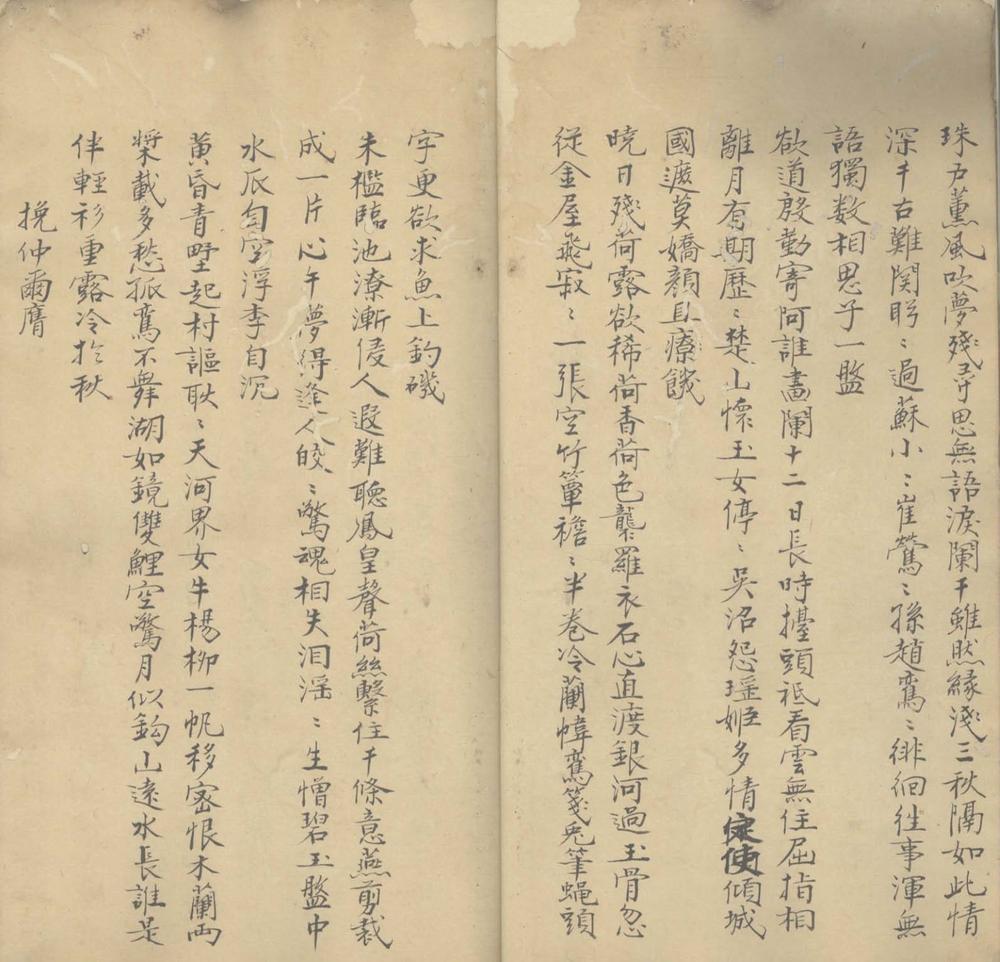 珠戶薰風吹夢殘尋思無語淚闌干雖然緣淺三秋隔如此情
深千古難関盻〻過蘇小〻崔鶯〻孫趙鸞〻徘徊往事渾無
語獨数相思子一盤
欲道慇勤寄阿誰畵闌十二日長時擡頭祗看雲無住屈指相
離月有期歷〻楚山懷玉女停〻吳沼怨瑶姬多情使傾城
國遮莫嬌顏且療饑
曉日殘荷露欲稀荷香荷色襲羅衣石心直渡銀河過玉骨忽
從金屋飛寂〻一張空竹簟襜〻半卷冷蘭幃鸞箋兎筆蝇頭
字更欲求魚上釣磯
朱檻臨池潦漸侵人遐難聽鳳皇聲荷絲繫住千條意燕剪裁
成一片心午夢得逢人皎〻驚魂相失泪滛〻生憎碧玉盤中
水瓜自空浮李自沉
黄昏青野起村謳耿〻天河界女牛楊柳一帆移密恨木蘭両
槳載多愁孤鸞不舞湖如鏡雙鯉空驚月似鈎山遠水長誰是
伴輕衫重露冷扵秋
挽仲爾膺